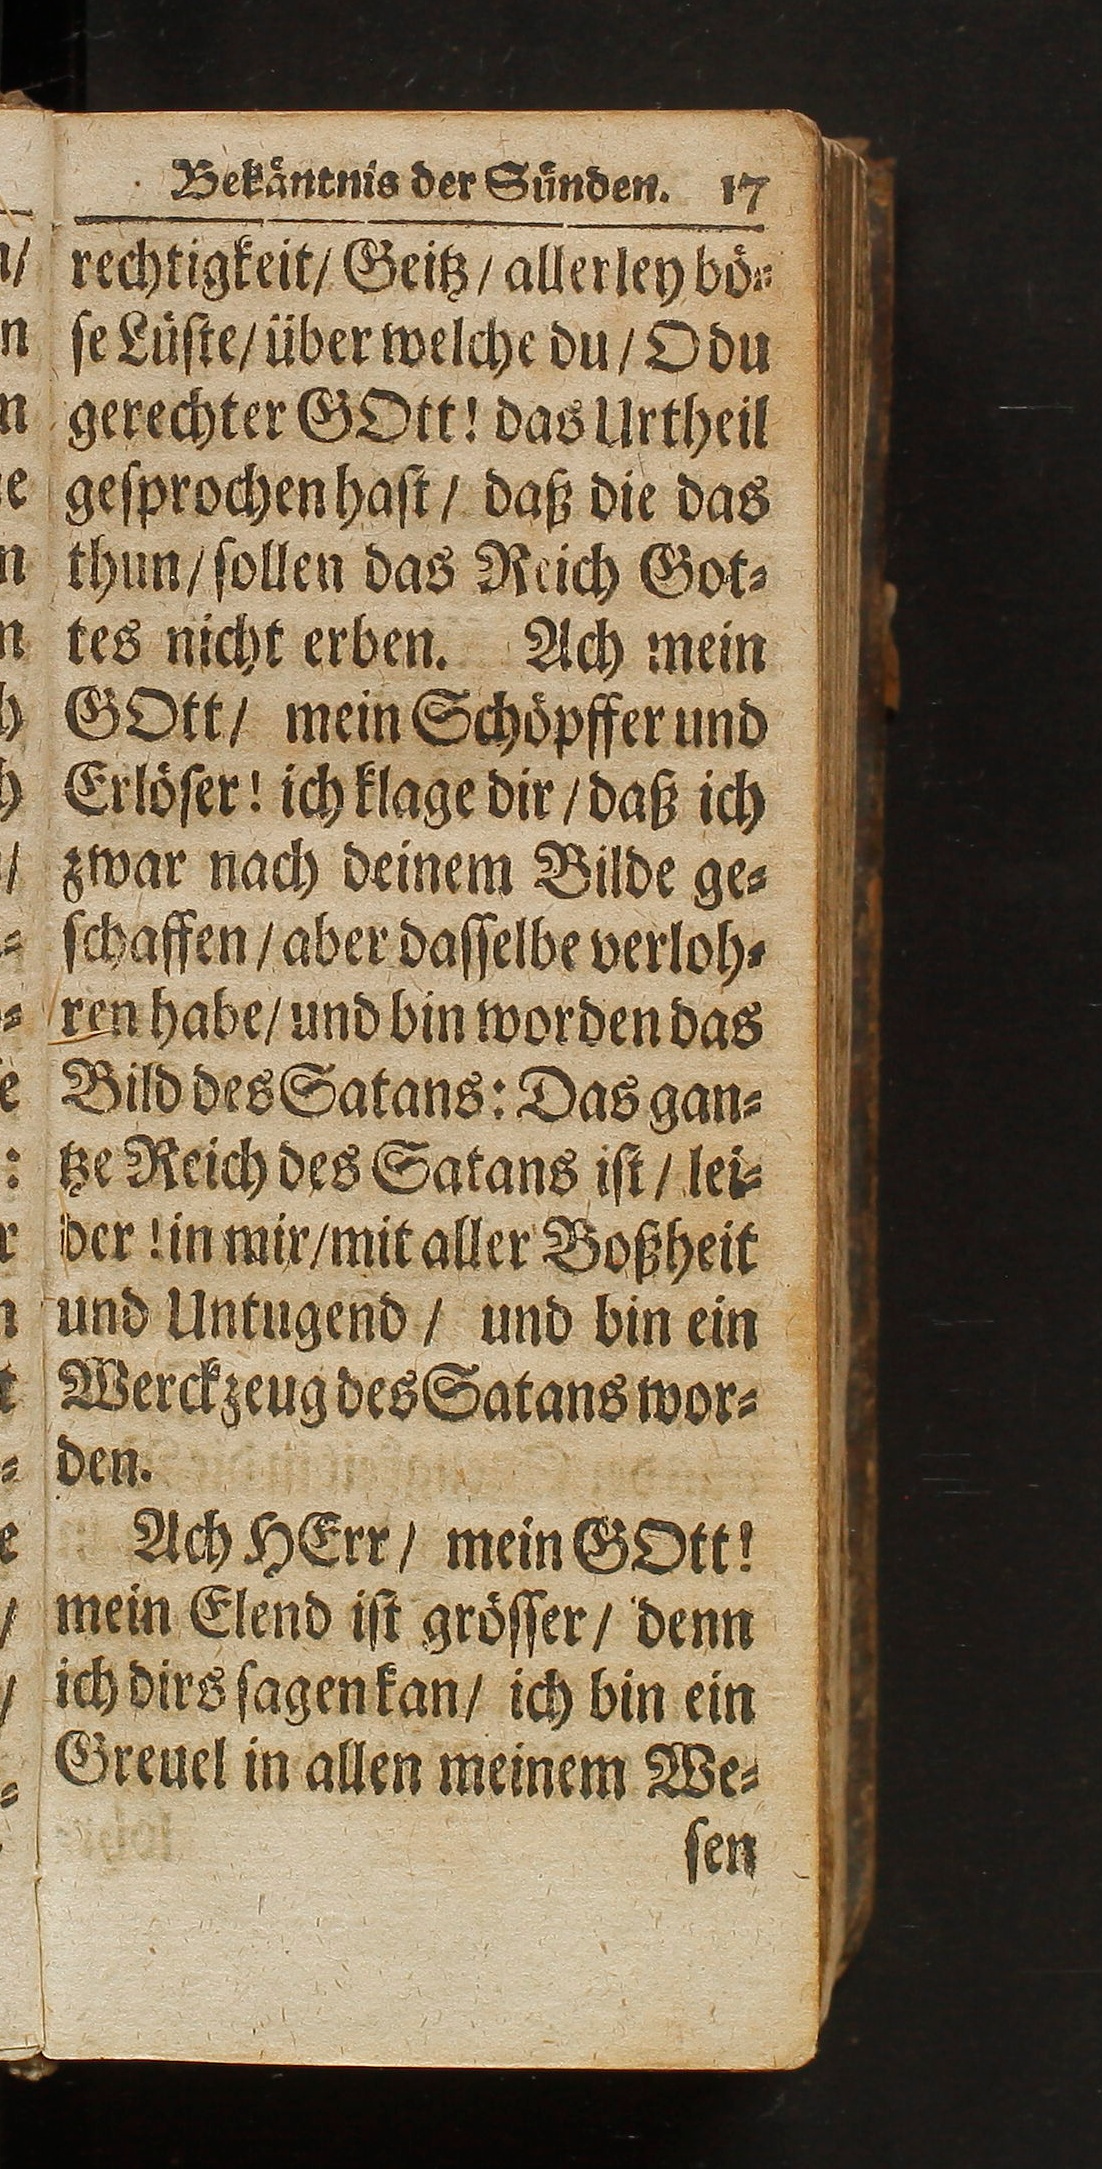 Bekäntnis der Sünden. 17
rechtigkeit/ Geitz / allerley bö-
se Lüste/ über welche du / O du
gerechter GOtt! das Urtheil
gesprochen hast / daß die das
thun/ sollen das Reich Got-
tes nicht erben. Ach mein
GOtt/ mein Schöpffer und
Erlöser! ich klage dir / daß ich
zwar nach deinem Bilde ge-
schaffen / aber dasselbe verloh-
ren habe/ und bin worden das
Bild des Satans: Das gan-
tze Reich des Satans ist / lei-
der ! in mir/mit aller Boßheit
und Untugend / und bin ein
Werckzeug des Satans wor-
den.
Ach HErr / mein GOtt!
mein Elend ist grösser / denn
ich dirs sagen kan/ ich bin ein
Greuel in allen meinem We-
sen